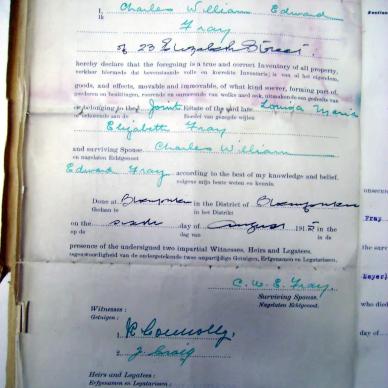 I Charles William Edward
Ik
Fray
of 23 Elizabeth Street.
hereby declare that the foregoing is a true and correct Inventory of all property,
verklaar hiermede dat bovenstaande volle en korrekte Inventaris is van al het eigendom,
goods, and effects, movable and immovable, of what kind soever, forming part of,
goederen en bezittingen, roerende en onroerende van welke aard ook, uitmakende een gedeelte van
or belonging to the Joint Estate of the said late Louisa Maria
of behorende aan de Boedel van gezegde wijlen
Elizabeth Fray
and surviving Spouse Charles William
en nagelaten Echtgenoot
Edward Fray according to the best of my knowledge and belief.
volgens mijn beste weten en kennis.
Done at in the District of
Gedaan te in het Distrikt
on the day of August 191
op de dag van in de
presence of the undersigned two impartial Witnesses, Heirs and Legatees.
tegenwoordigheid van de ondergetekende twee onpartijdige Getuigen, Erfgenamen en Legatarissen.
C. W. E. Fray
Surviving Spouse.
Nagelaten Echtgenoot.
Witnesses :
Getuigen :
1. K Connolly.
2. J. Craig
Heirs and Legatees :
Erfgenamen en Legatarissen :
consec
Fray
the sur
Mayer)
who died
day of